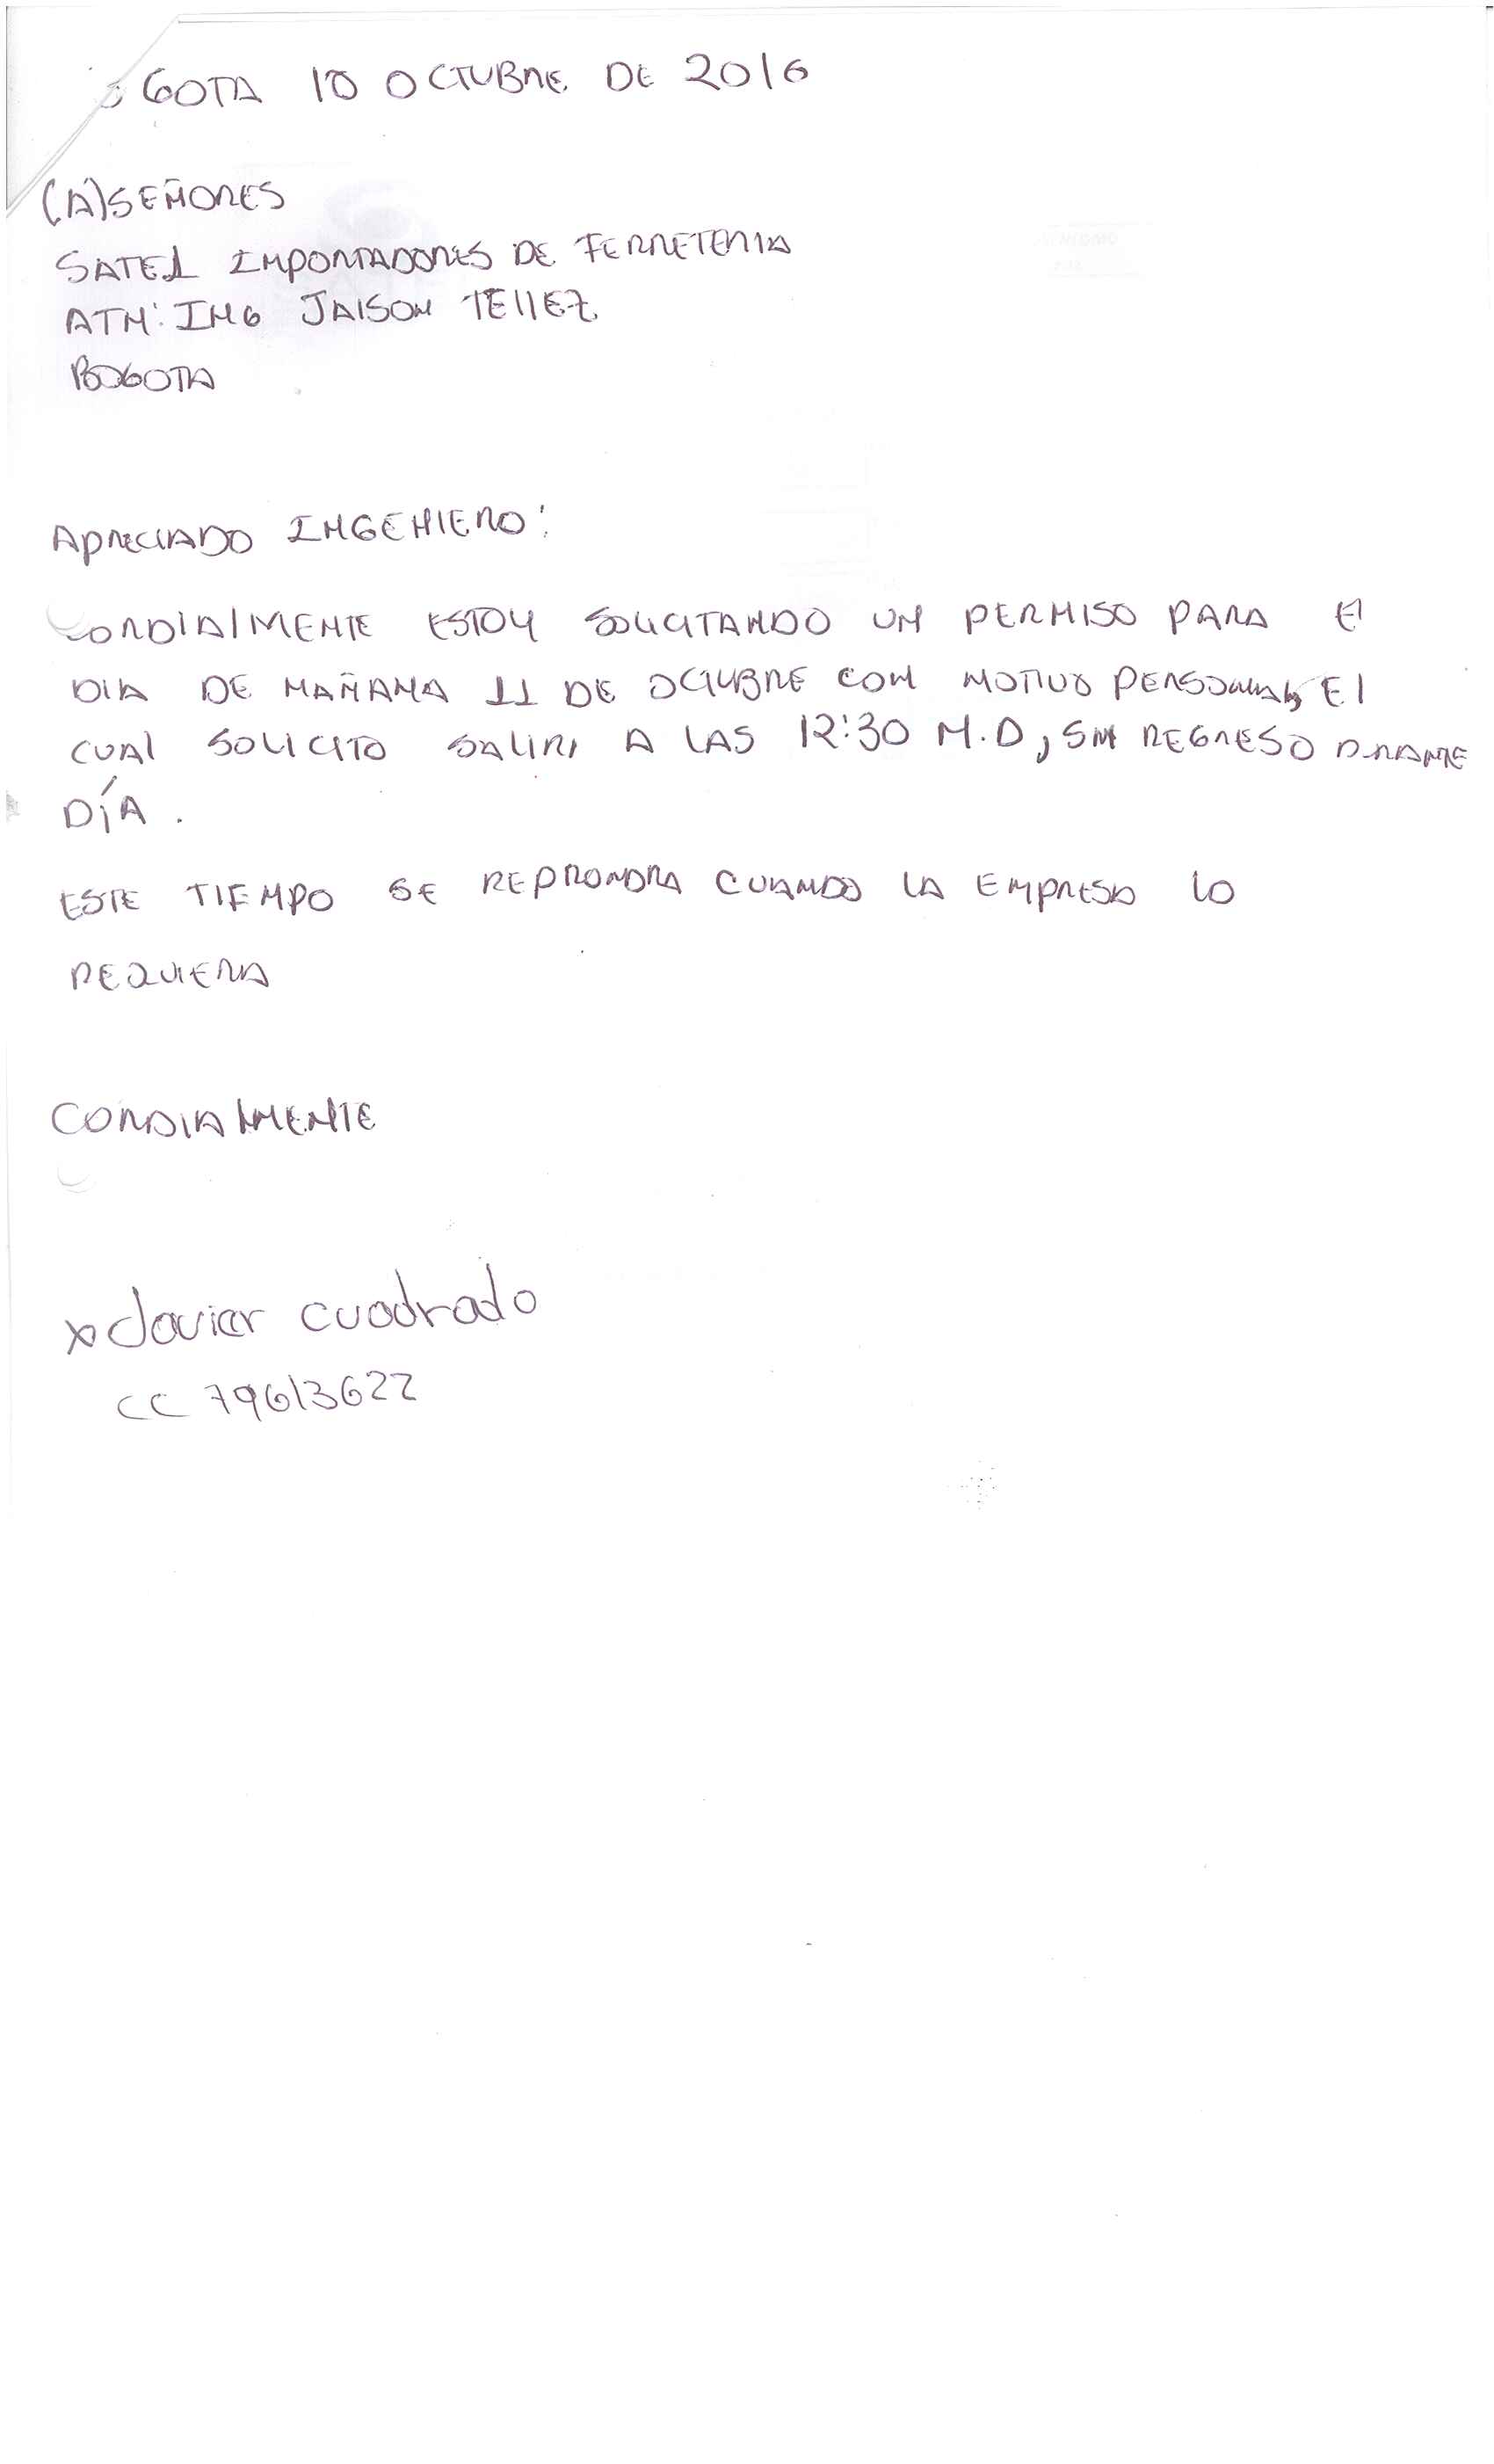 OGOTA 10 OCTUBRE DE 2016
(A)SEÑORES
SATEL IMPORTADORES DE FERRETERIA
ATN: ING JAISON TELLEZ
BOGOTA
APRECIADO INGENIERO:
CORDIALMENTE ESTOY SOLICITANDO UN PERMISO PARA El
DIA DE MAÑANA 11 DE OCTUBRE CON MOTIVO PERSONAL, El
CUAl SOLICITO SALIR, A LAS 12:30 M.D, SIN REGRESO DURANTE
DÍA.
ESTE TIEMPO SE REPRONDRA CUANDO LA EMPRESA LO
REQUIERA
CORDIALMENTE
x Javier cuadrado
CC 79613622